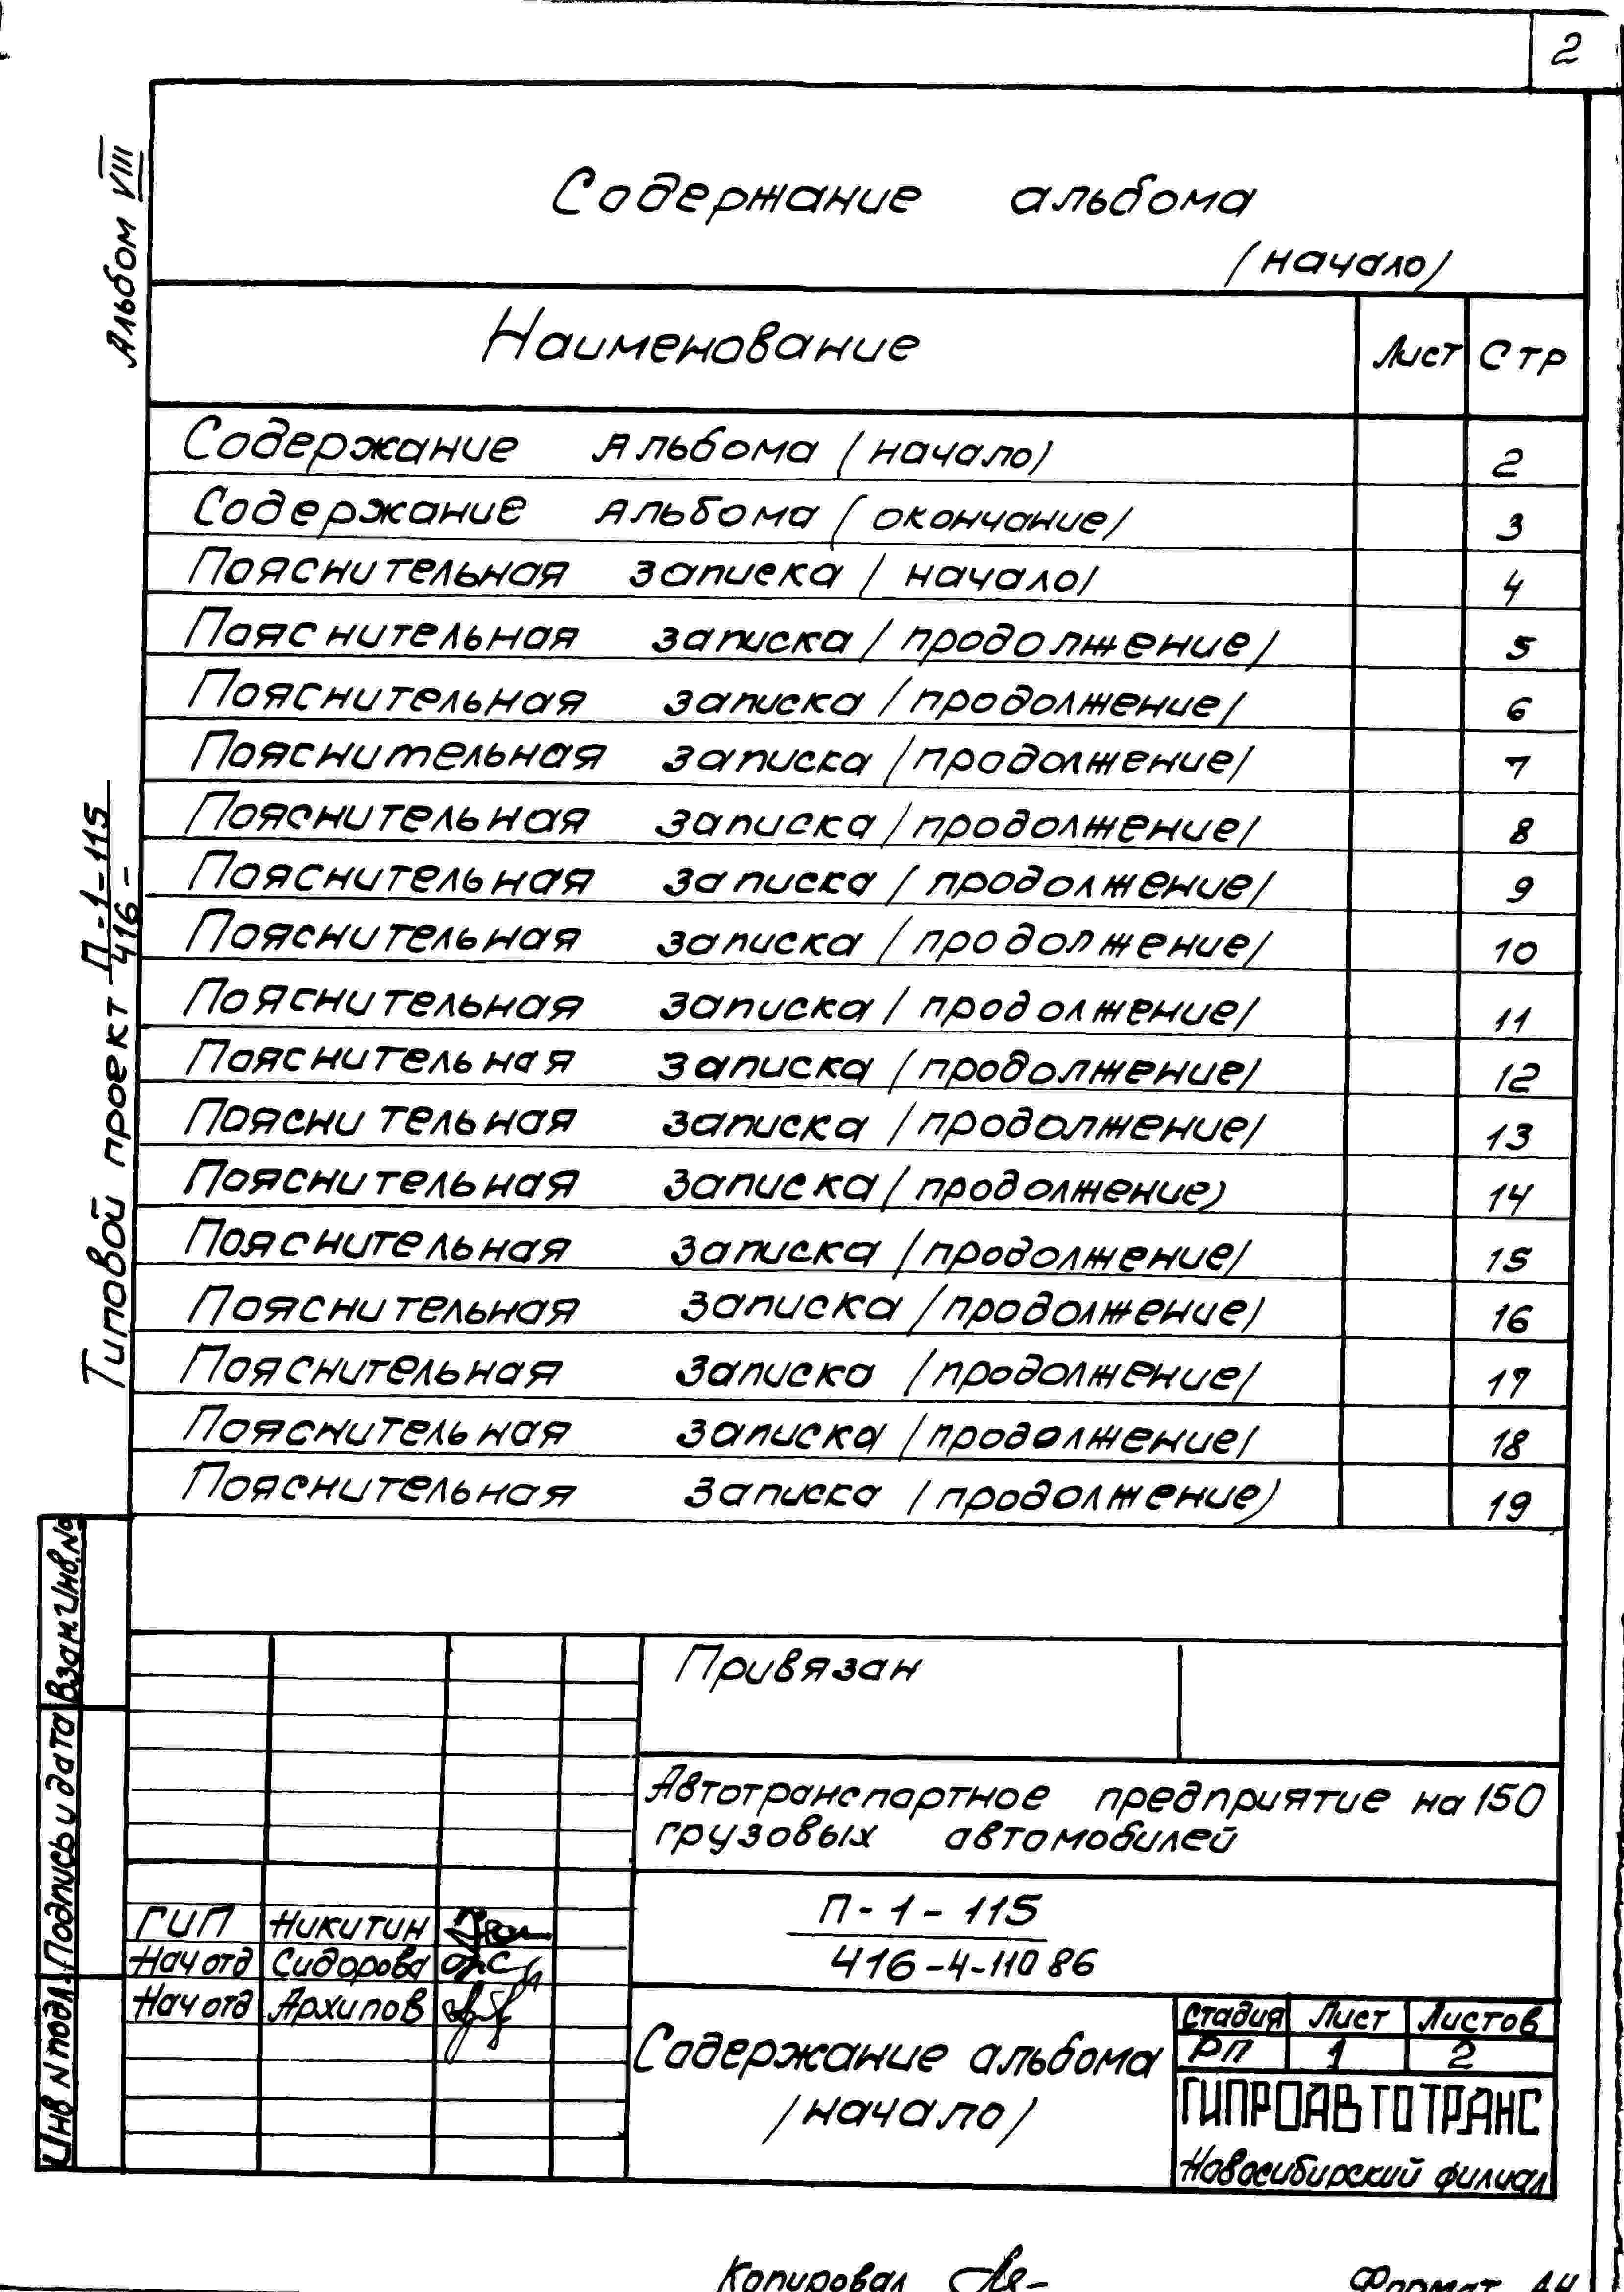 2
Альбом VIII
Содержание альбома
(начало)
Наименование Лист Стр
Содержание альбома (начало) 2
Содержание альбома (окончание) 3
Пояснительная записка /начало/ 4
Пояснительная записка /продолжение/ 5
Пояснительная записка /продолжение/ 6
Пояснительная записка /продолжение/ 7
Пояснительная записка /продолжение/ 8
Пояснительная записка /продолжение/ 9
Пояснительная записка /продолжение/ 10
Пояснительная записка /продолжение/ 11
Пояснительная записка /продолжение/ 12
Пояснительная записка /продолжение/ 13
Пояснительная записка /продолжение) 14
Пояснительная записка /продолжение/ 15
Пояснительная записка /продолжение) 16
Пояснительная записка /продолжение/ 17
Пояснительная записка /продолжение/ 18
Пояснительная записка /продолжение) 19
Типовой проект П-1-115
416-
Взам.Инв.№
Подпись и дата
Инв N подл.
Привязан
Автотранспортное предприятие на 150
грузовых автомобилей
П-1-115
416-4-110 86
ГИП Никитин
Нач отд Сидорова
Нач отд Архипов
Содержание альбома
/начало/
Стадия Лист Листов
РП 1 2
ГИПРОАВТОТРАНС
Новосибирский филиал
Копировал
Формат А4